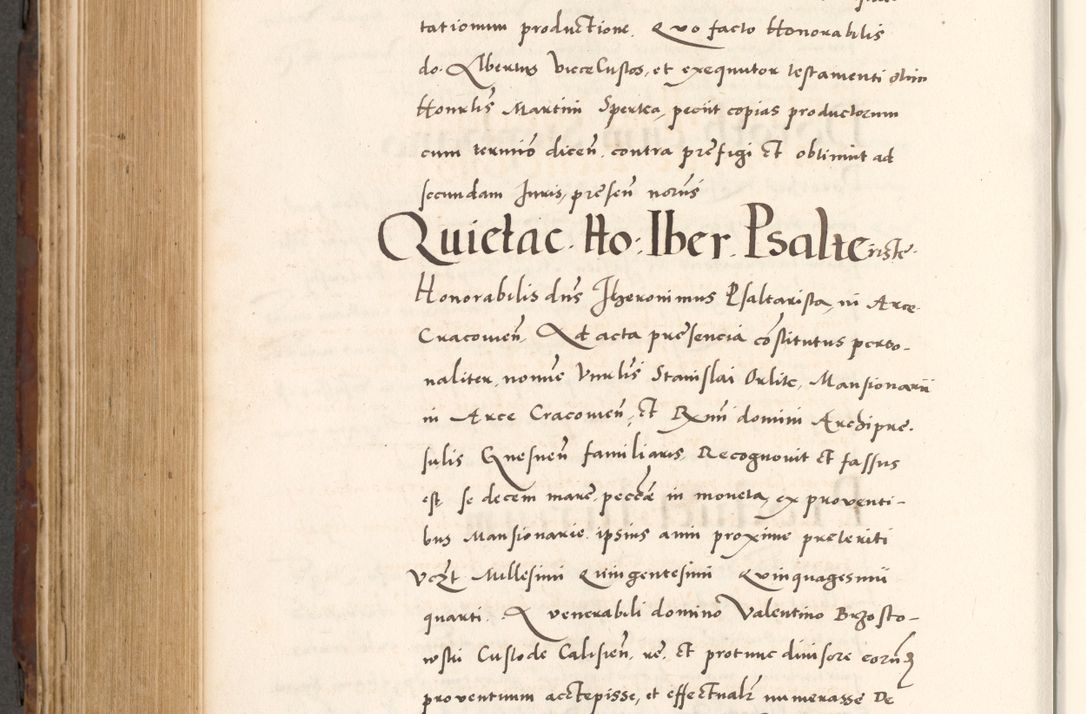 tationum productione. Quo facto Honorabilis
do. Albertus ViceCustos, et exequutor testamenti olim
Honrlis Martini Spertka, peciit copias productorum
cum termino dicen. contra prefigi et obtinuit ad
secundam Iuris, presen norus
Quietac. Ho: Iher. Psalteriste.
Honorabilis dns Jheronimus Psaltarista, in Arce
Cracouien. Ad acta presencia costitutus perso-
naliter, nomine Vnrlis Stanislai Orlite, Mansionarii
in Arce Cracouien, et Rxmi domini Archipre-
sulis Gnesnen familiaris, Recognouit et fassus
est, se decem marc. peccae in moneta, ex proventi-
bus Mansionarie ipsius anni proxime preteriti
Vczt Millesimi Quingentesimi Quinquagesimi
quarti. A venerabili domino Valentino Brzosto-
wski Custode Calisien. re. et protunc diuisore eorum
proventuum acctepisse, et effectualr numerasse De